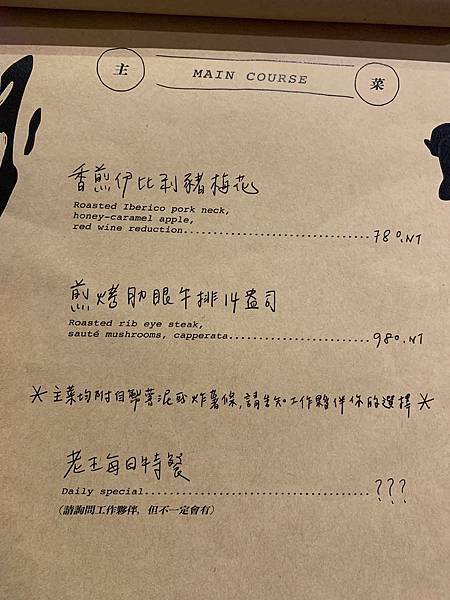 主 MAIN COURSE 菜
香煎伊比利豬梅花
Roasted Iberico pork neck,
honey-caramel apple,
red wine reduction..............................780.NT
煎烤肋眼牛排14盎司
Roasted rib eye steak,
sauté mushrooms, capperata......................980.NT
*主菜均附自製薯泥或炸薯條,請告知工作夥伴你的選擇*
老王每日特餐
Daily special.......................................???
(請詢問工作夥伴, 但不一定會有)